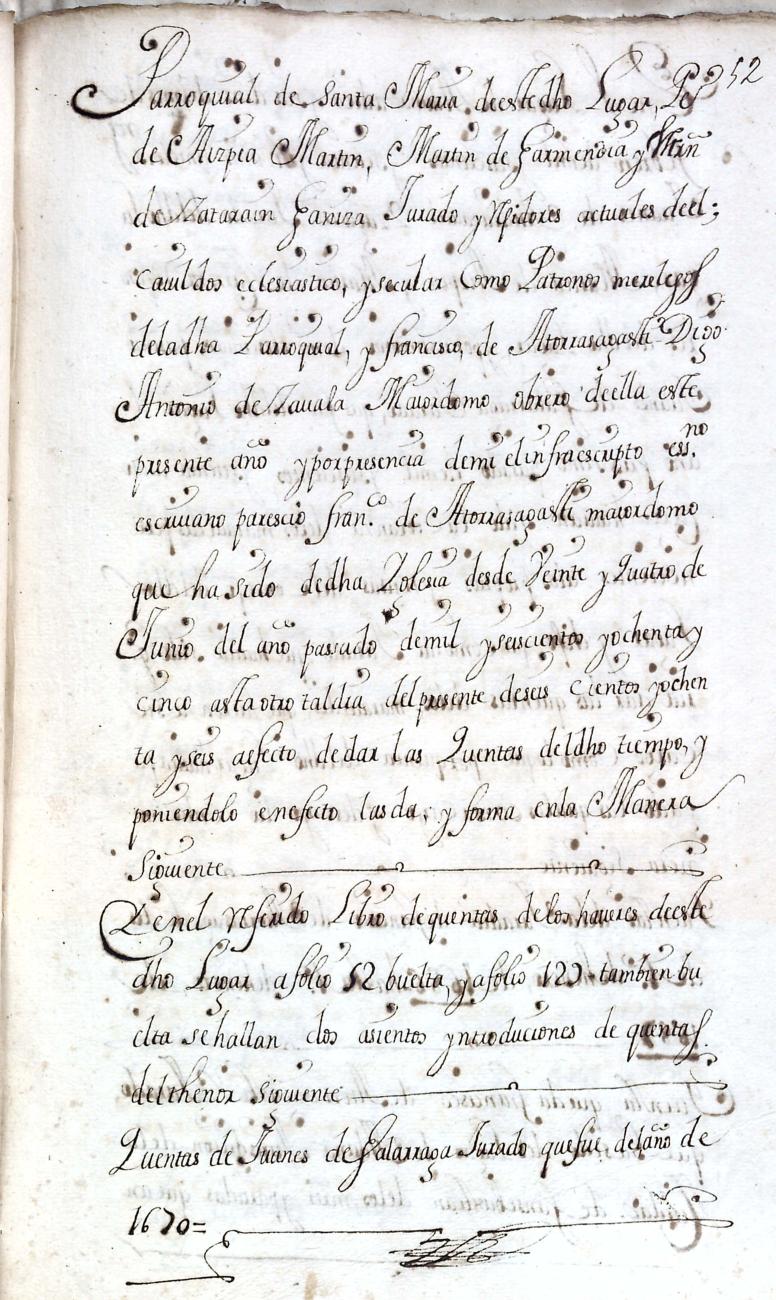 52
Parroquial de Santa Maria de este dho Lugar, Po
de Aizpea Martin, Martin de Garmendia y Mrñ
de Zatarain Ganiza Jurado y Rejidores actuales de el;
cauildos eclesiastico, y secular Como Patronos merelegos
de la dha Parroquial, y francisco, de Atorrasagasti Diego
Antonio de Zauala Maiordomo obrero de ella este
presente año y por presencia de mi el infraescripto essno
escriuano parescio franco de Atorrasagasti maiordomo
que ha sido de dha Yglesia desde Veinte y Quatro de
Junio del año passado de mil y seiscientos y ochenta y
cinco asta otro tal dia del presente de seis Cientos y ochen
ta y seis a efecto de dar las Quentas del dho tiempo, y
poniendolo en efecto las da, y forma en la Manera
Siguiente
Y en el Referido Libro de quentas de los haueres de este
dho Lugar a folio 52 buelta, y a folio 127 tambien bu
elta se hallan dos asientos yntroduciones de quentas
del thenor siguiente
Quentas de Juanes de Galarraga Jurado que fue del año de
1670=